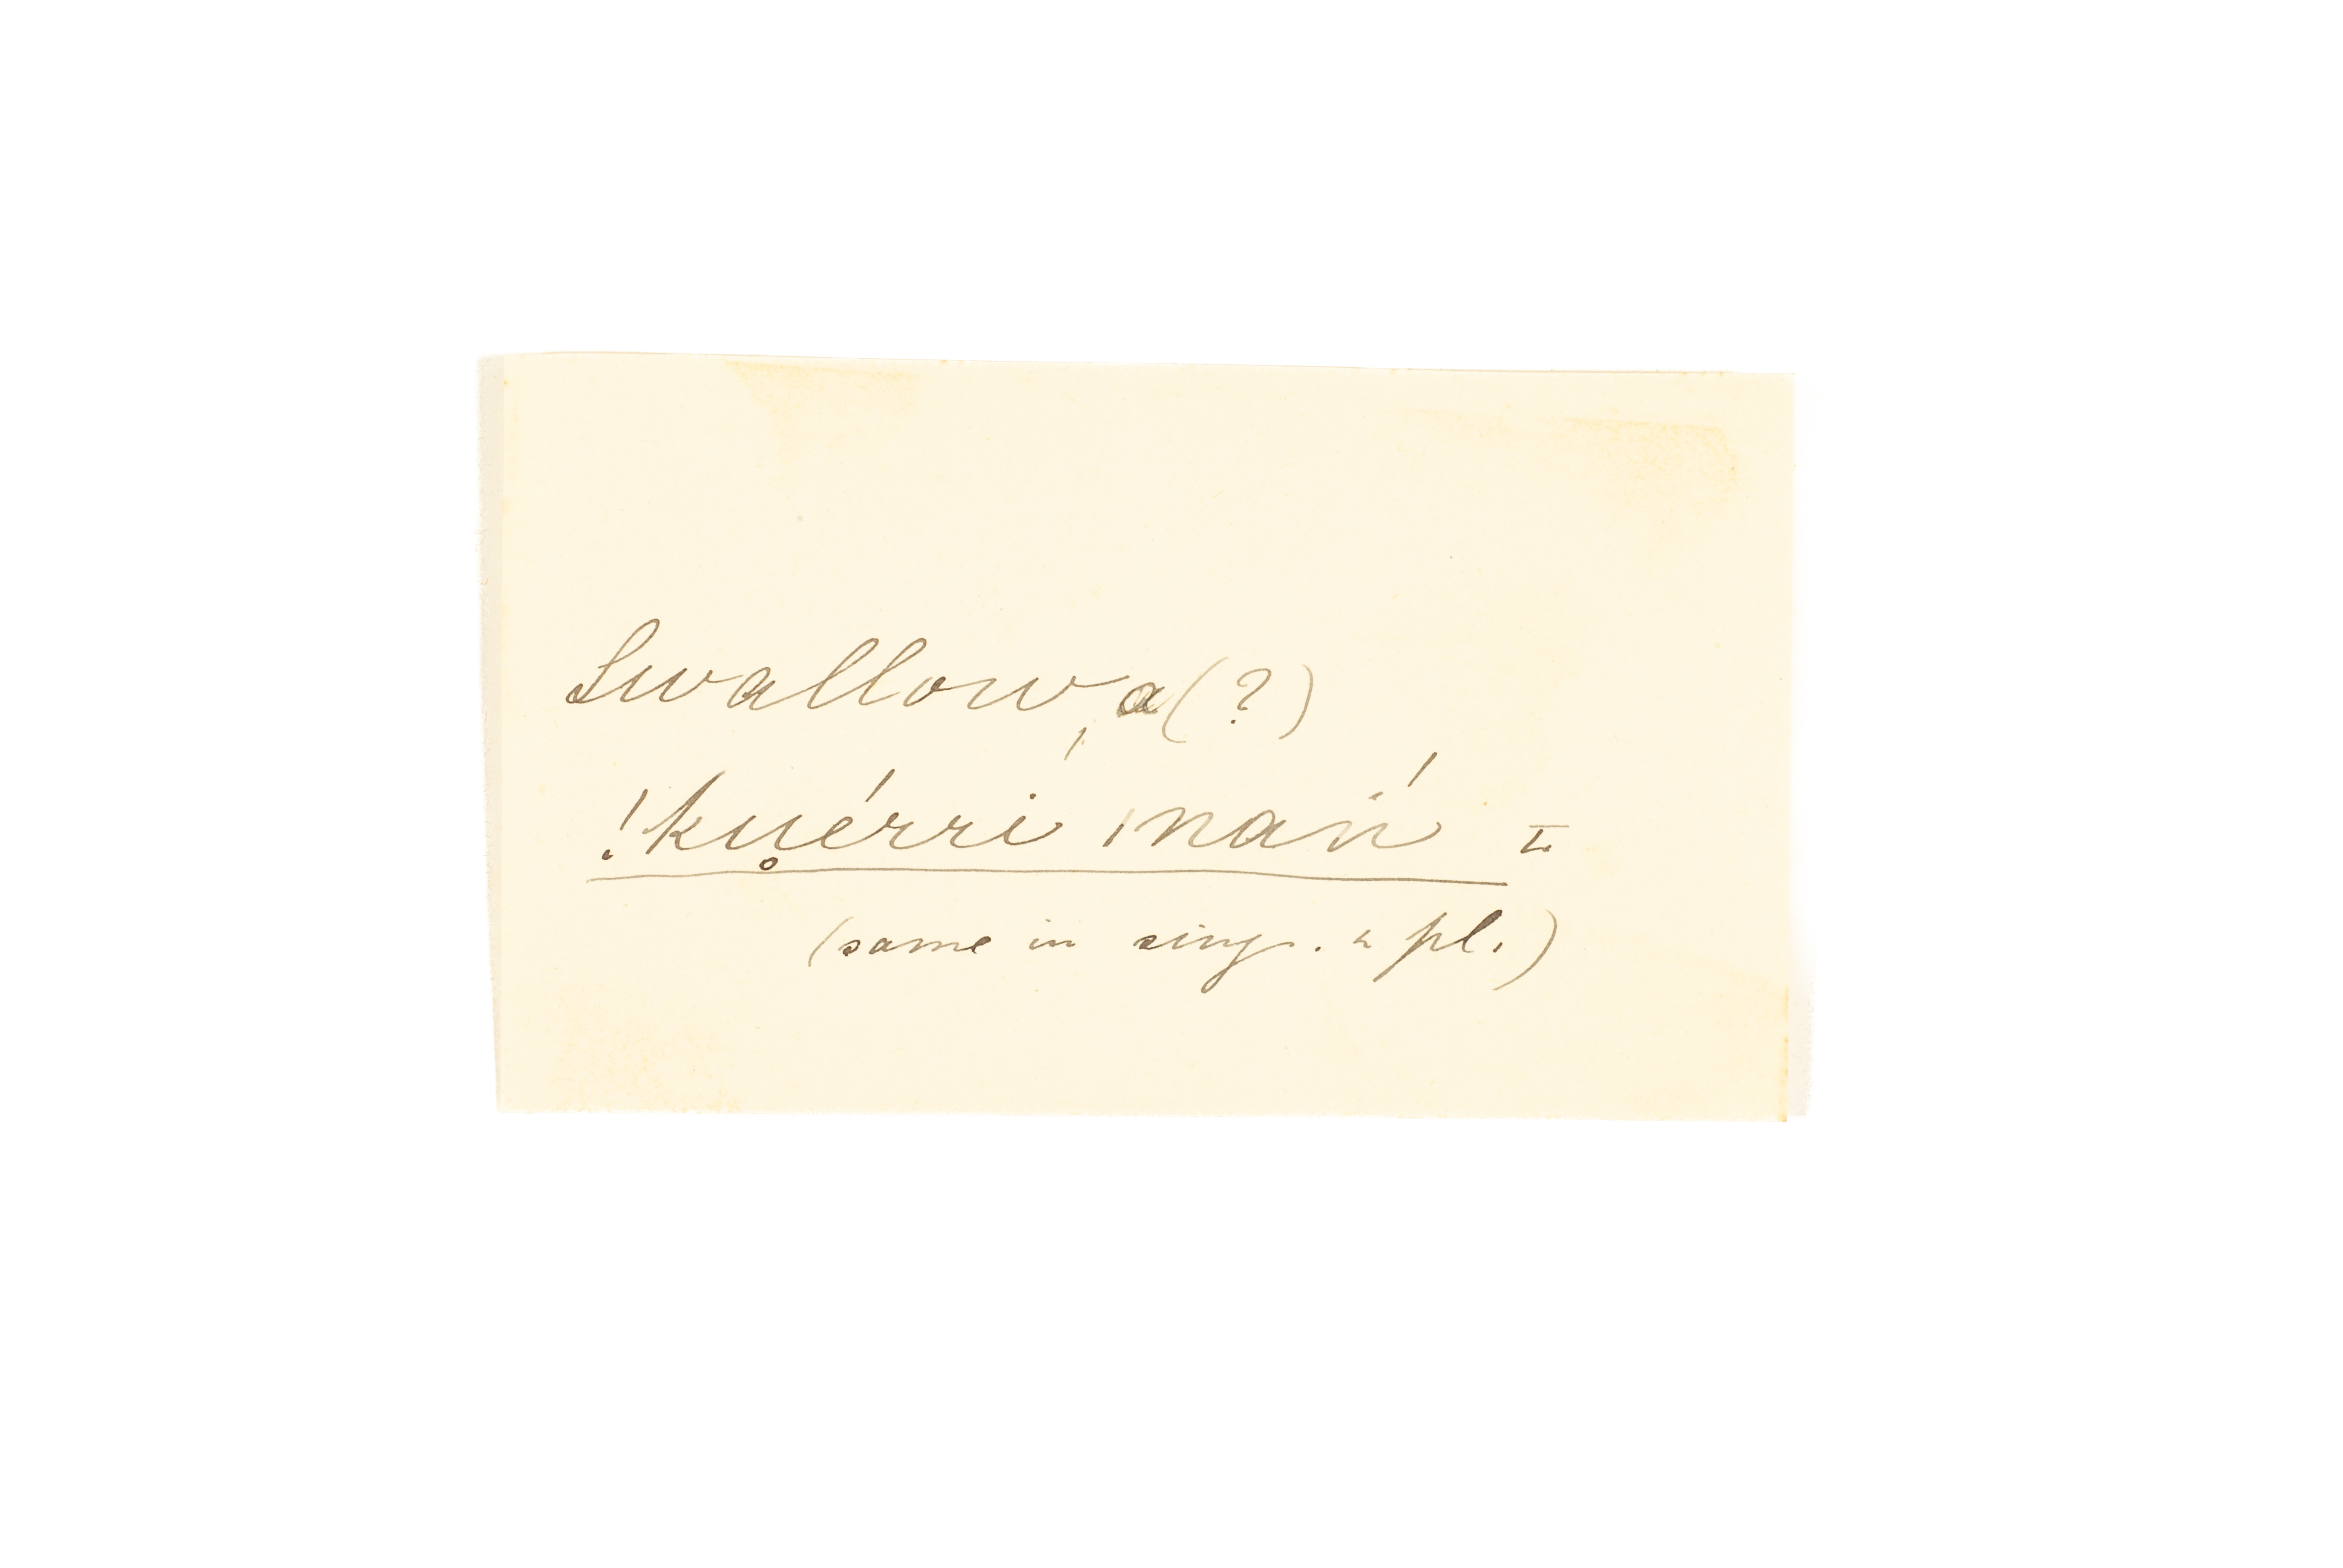 Swallow, a (?)
!kụ̊érri ǀnáṅ L.
(same in sing. & pl.)